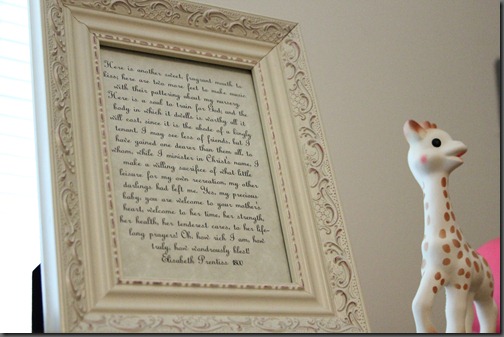 Here is another sweet, fragrant mouth to
kiss; here are two more feet to make music
with their pattering about my nursery.
Here is a soul to train for God; and the
body in which it dwells is worthy all it
will cost, since it is the abode of a kingly
tenant. I may see less of friends, but I
have gained one dearer than them all, to
whom, while I minister in Christ's name, I
make a willing sacrifice of what little
leisure for my own recreation, my other
darlings had left me. Yes, my precious
baby, you are welcome to your mother's
heart, welcome to her time, her strength,
her health, her tenderest cares, to her life-
long prayers! Oh, how rich I am, how
truly, how wondrously blest!
Elizabeth Prentiss